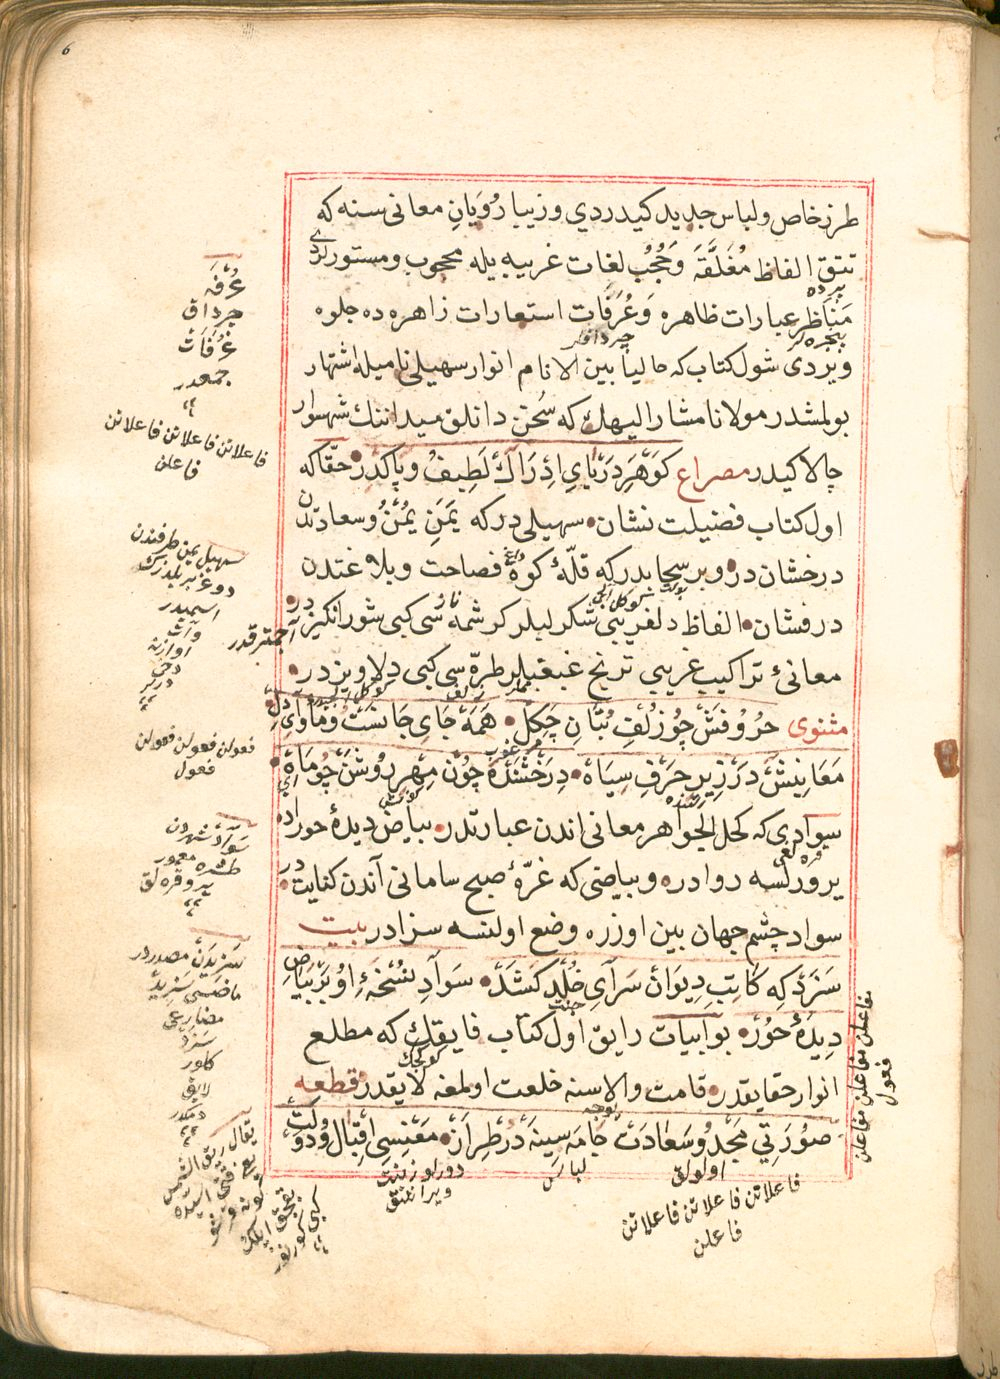 6
طرز خاص ولباس جدید کیدردي وزیبا رُویَانِ معانی سنه که
تتق الفاظ مُغلَّقَه وَحُجُبِ لغات غریبه یله محجوب ومستور لردی
پرده
مَنَاظر عبارات ظاهره وَغُرَفَات استعارات زاهره ده جلوه
پنجره لر
ویردی شول کتاب که حالیا بین الانام انوار سهیلی نامیله اشتهار
بولمشدر مولانا مشار الیهك که سُخن دانلق میداننك شهسوار
چالاکیدر مصراع کَوهَرِ دَرْیَايِ اِدْرَاكْ لَطِیفُ وپاکدر حقّا که
اول کتاب فضیلت نشان سهیلی درکه یَمَنِ یُمْنُ وسعادتدن
درخشان در وبر سحابدرکه قلّهٔ کوهٔ فصاحت وبلاغتدن
درفشان الفاظ دلفریبی شکر لبلر کرشمه سی کبی شور انکیزدر
نار
معانیٔ تراکیب غریبی ترنج غبغبلر طرّه سی کبی دلاویزدر
مثنوی حُرُوفَشْ چُو زُلفِ بُتَانِ چِکِلْ هَمَه جَايِ جَانَسْتُ ومَأوَايِ دِلْ
مَعَانِیشْ دَرْ زِیرِ حَرْفِ سِیَاهْ دِرَخْشَنْدَه چُونْ مِهْرِ رُوشَنْ چُو مَاهْ
سوادی که کحل الجواهر معانی اندن عبارتدر بیاض دیدهٔ حوراده
یر ورلسه روادره وبیاضی که غرّهٔ صبح سامانی آندن کنایتدر
سواد چشم جهان بین اوزره وضع اولنسه سزادر بیت
سَزَدْ کِه کَاتِبِ دِیوَانْ سَرَآيِ خُلْد کَشَدْ سَوَادِ نُسْخَهٔ اُو بَرْ بَیَاضِ
جنت
دِیدَهٔ حُورْ بو ابیات رایق اول کتاب فایقك که مطلع
انوار حقایقدر قامت والاسنه خلعت اولمغه لایقدر قطعه
صُورَتِي مَجْدُ وسَعَادَتْ جَامَه سِینَه دَرْ طِرَازْ مَعْنِیسِي اِقْبَالُ ودَولَتْ
لباس
اولولق
فاعلاتن فاعلاتن فاعلاتن
فاعلن
عُرْفَه
چرداق
غُرُفَاتْ
جمعدر
فاعلاتن فاعلاتن فاعلاتن
فاعلن
سهیل یمن طرفندن
دوغر بر یلدزك
اسمیدر
فعولن فعولن فعولن
فعول
سَوَادْ شهردن
طشره معمور
سَزِیدَنْ مصدردر
ماضیسی سَزِیدْ
مضارعی
سَزَدْ
کلور
لایق
دیمکدر
مفاعلن مفاعلن مفاعلن
فعول